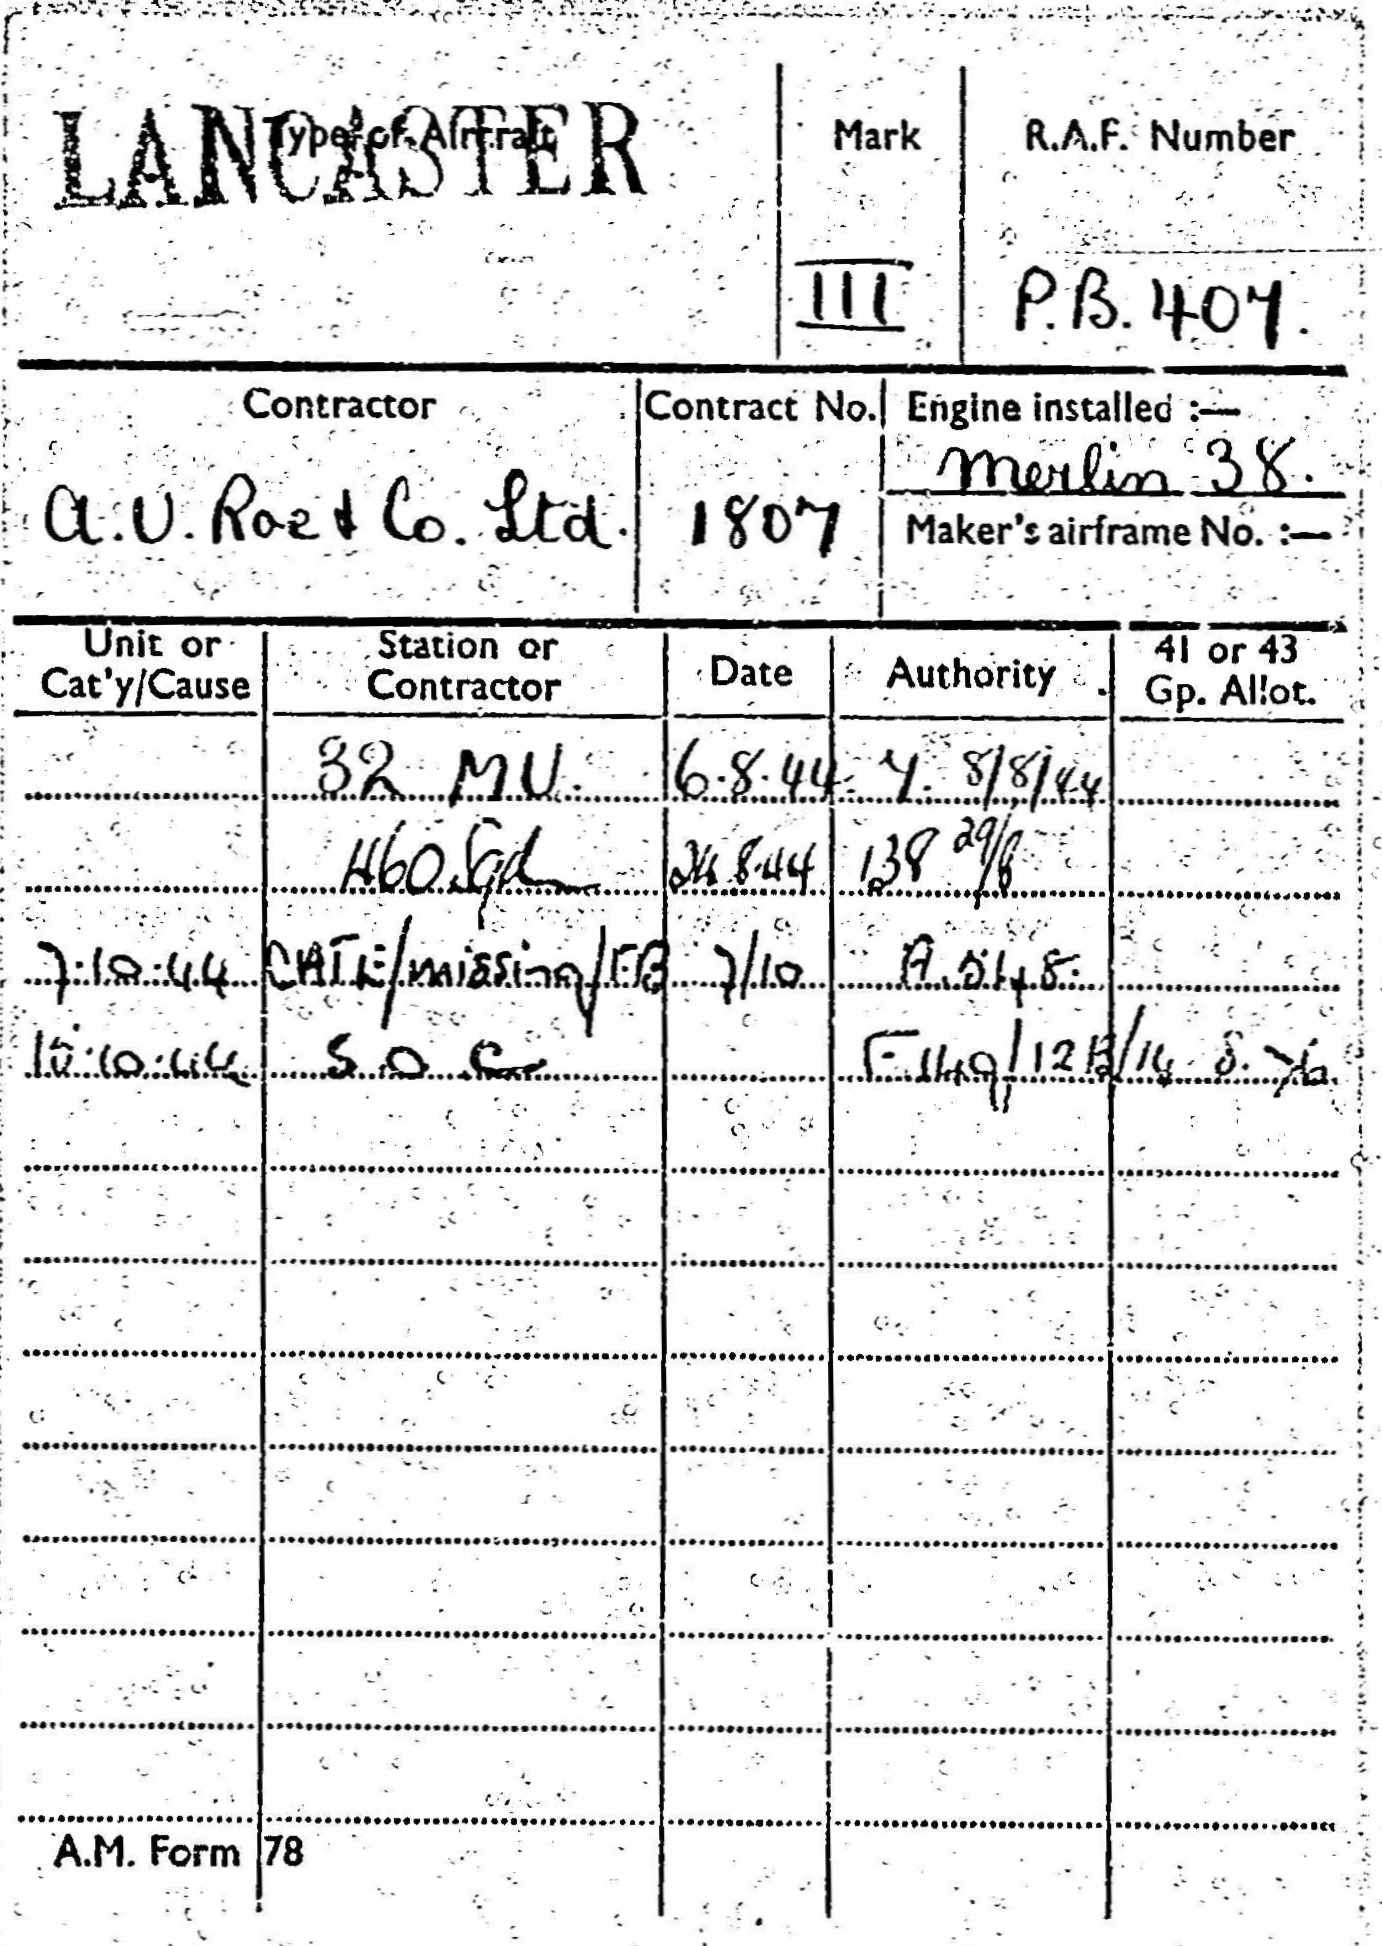 Type of Aircraft Mark R.A.F. Number
LANCASTER
III P.B. 407.
Contractor Contract No. Engine installed :—
Merlin 38.
A.V. Roe & Co. Ltd. 1807
Maker's airframe No. :—
Unit or Cat'y/Cause Station or Contractor Date Authority 41 or 43 Gp. Allot.
32 MU. 6.8.44. 7. 8/8/44
460 Sqd 24.8.44 138 29/8
7.10.44 CAT E/missing/FB 7/10 A.548.
10.10.44 S.O.C. F.149/12B/14 S.76
A.M. Form 78